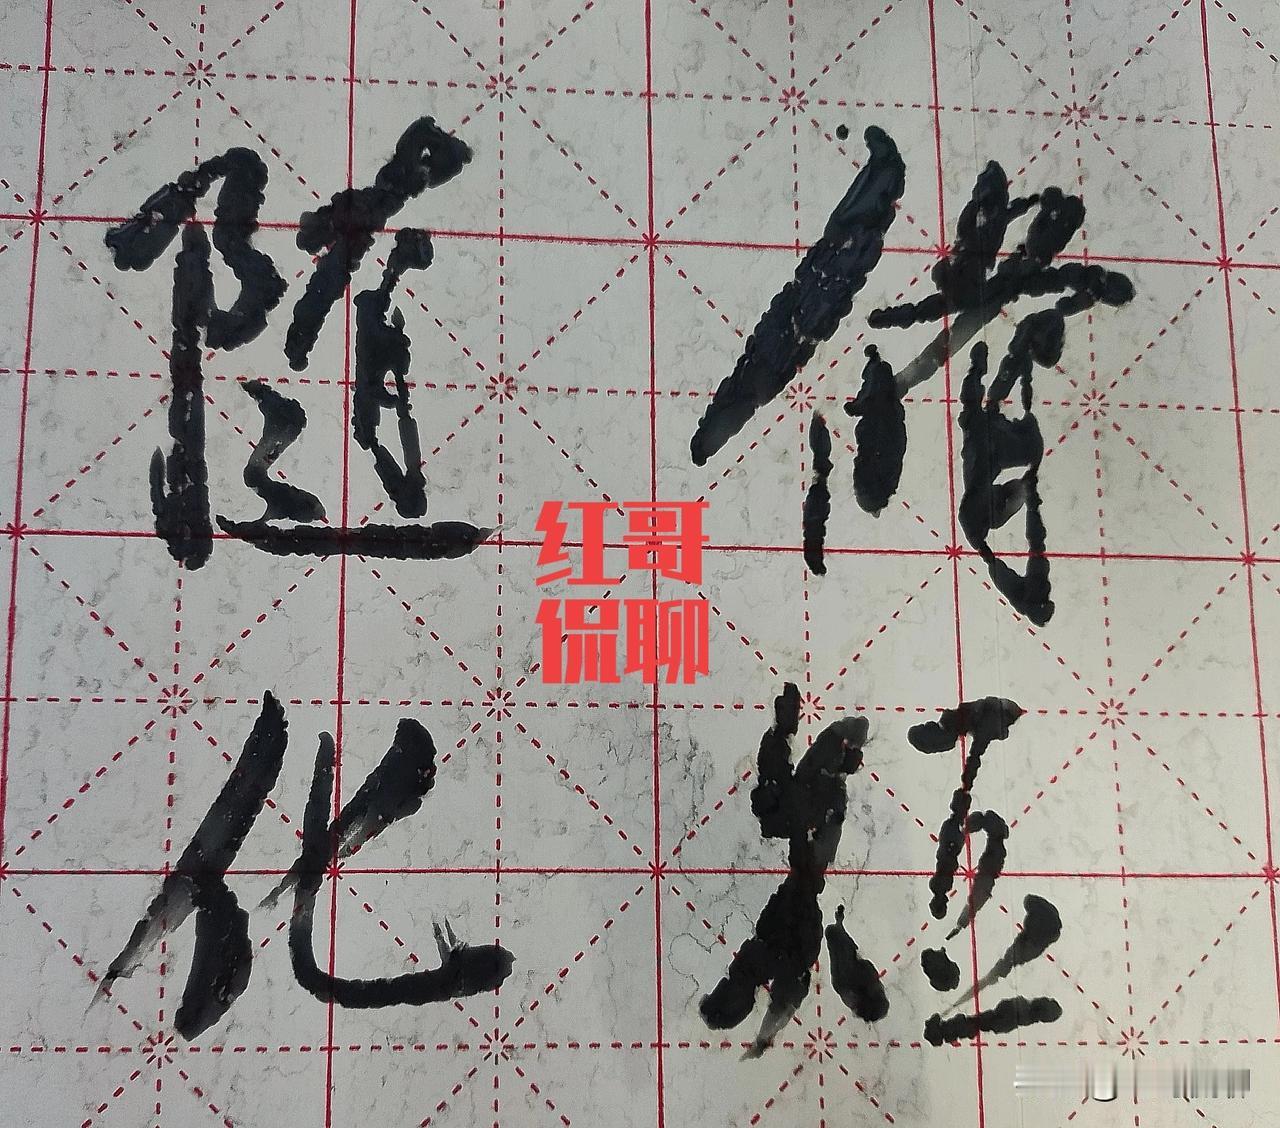 脩短
随化
红哥
侃聊